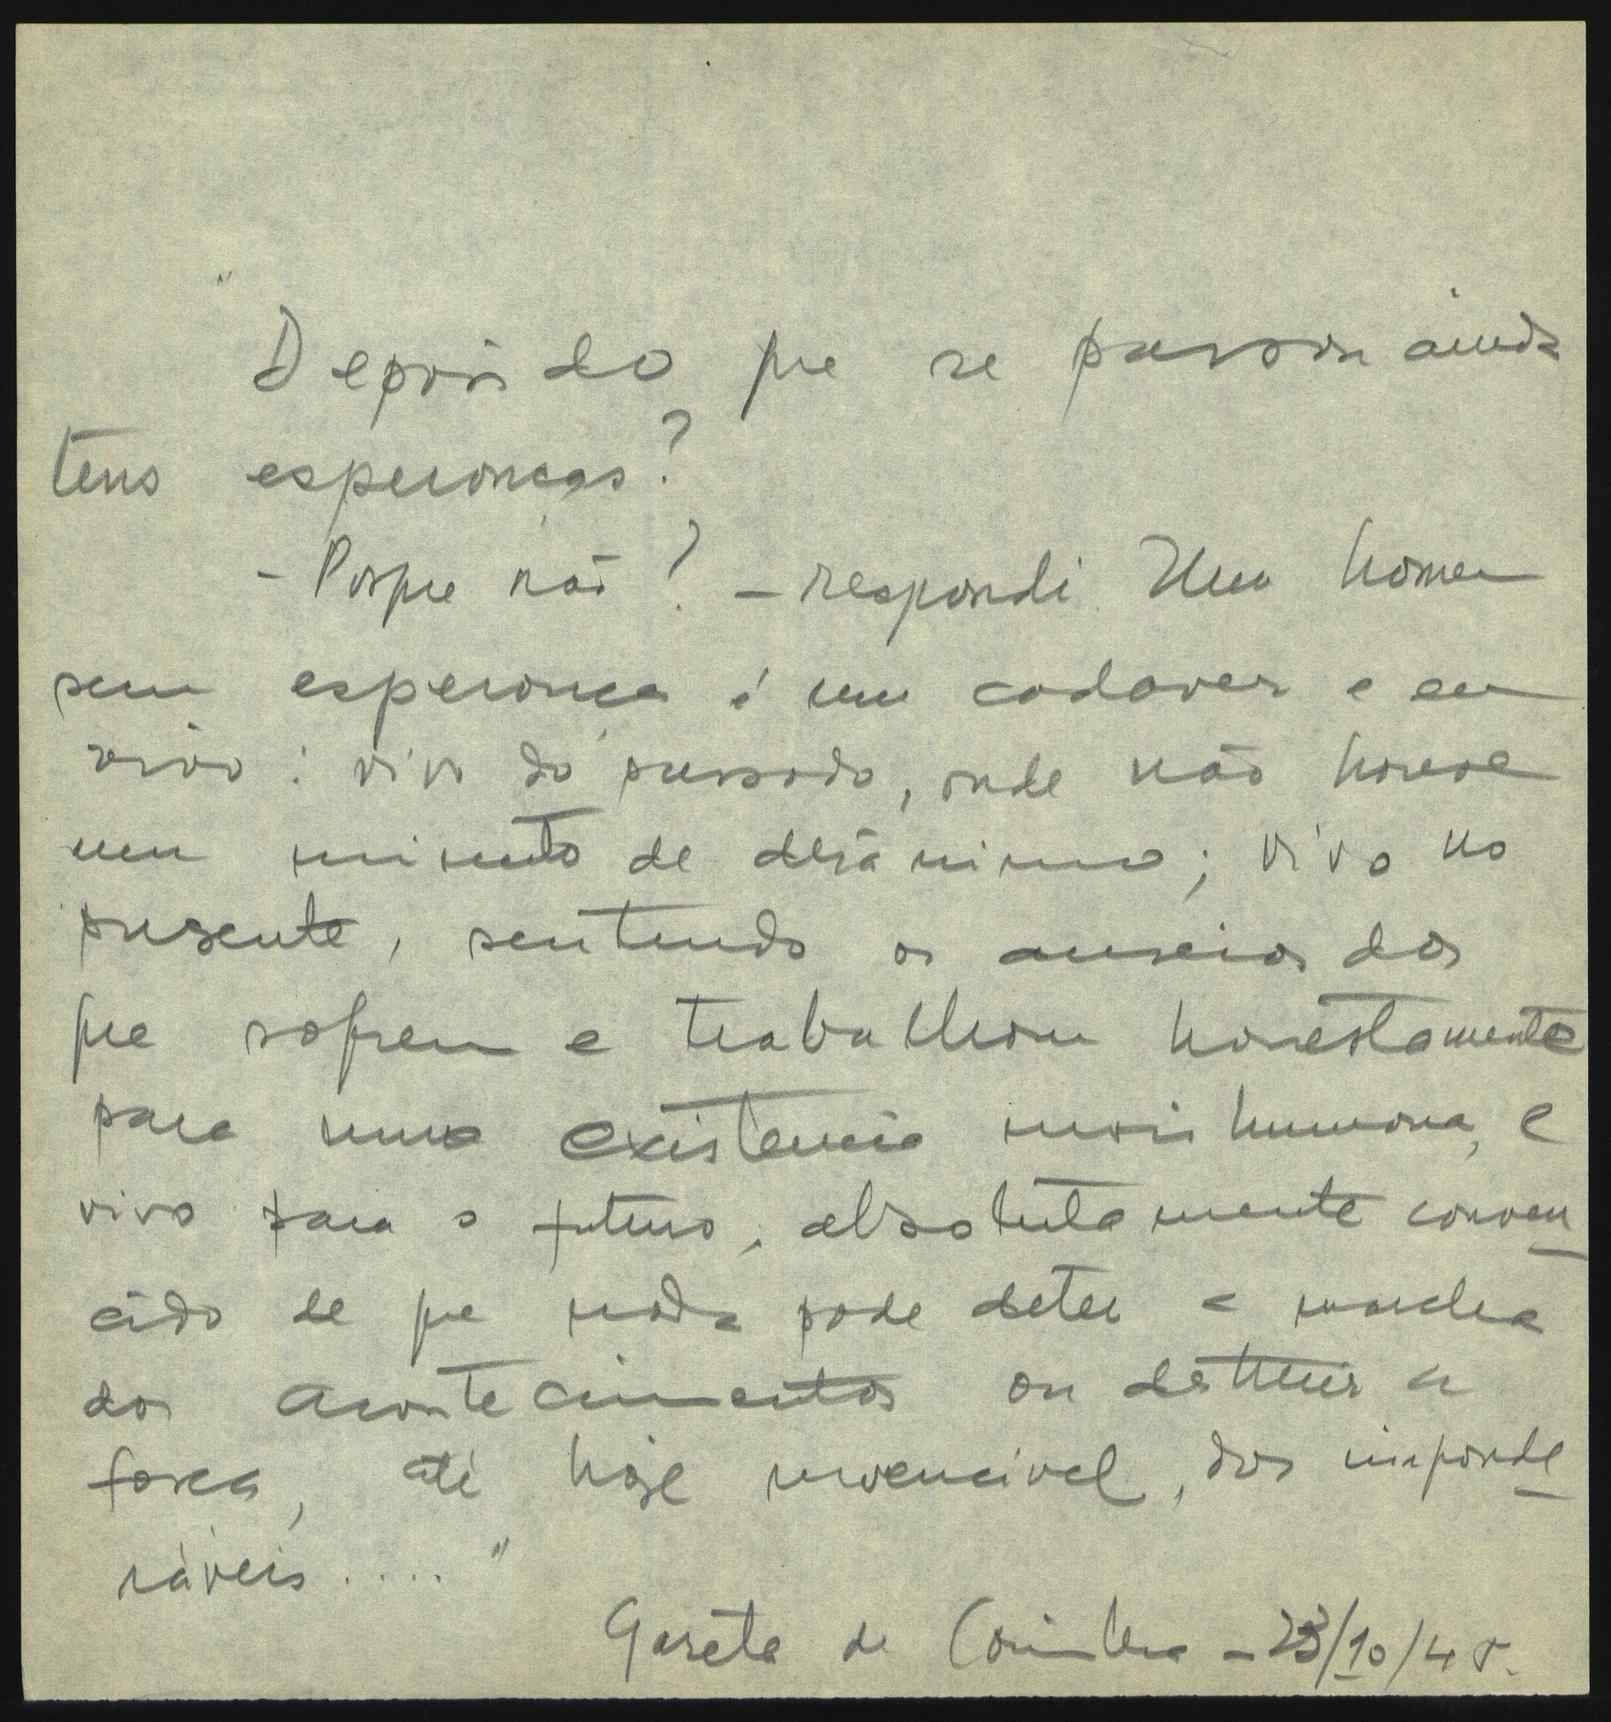 "Depois do que se passou ainda
tens esperanças?
- Porque não? - respondi. Um homem
sem esperança é um cadaver e eu
vivo: vivo do passado, onde não houve
um minuto de desânimo; vivo no
presente, sentindo os anseios dos
que sofrem e trabalham honestamente
para uma existencia mais humana, e
vivo para o futuro, absolutamente conven
cido de que nada pode deter a marcha
dos acontecimentos ou destruir a
força, até hoje invencível, dos imponde
ráveis...."
Gazeta de Coimbra - 23/10/45.